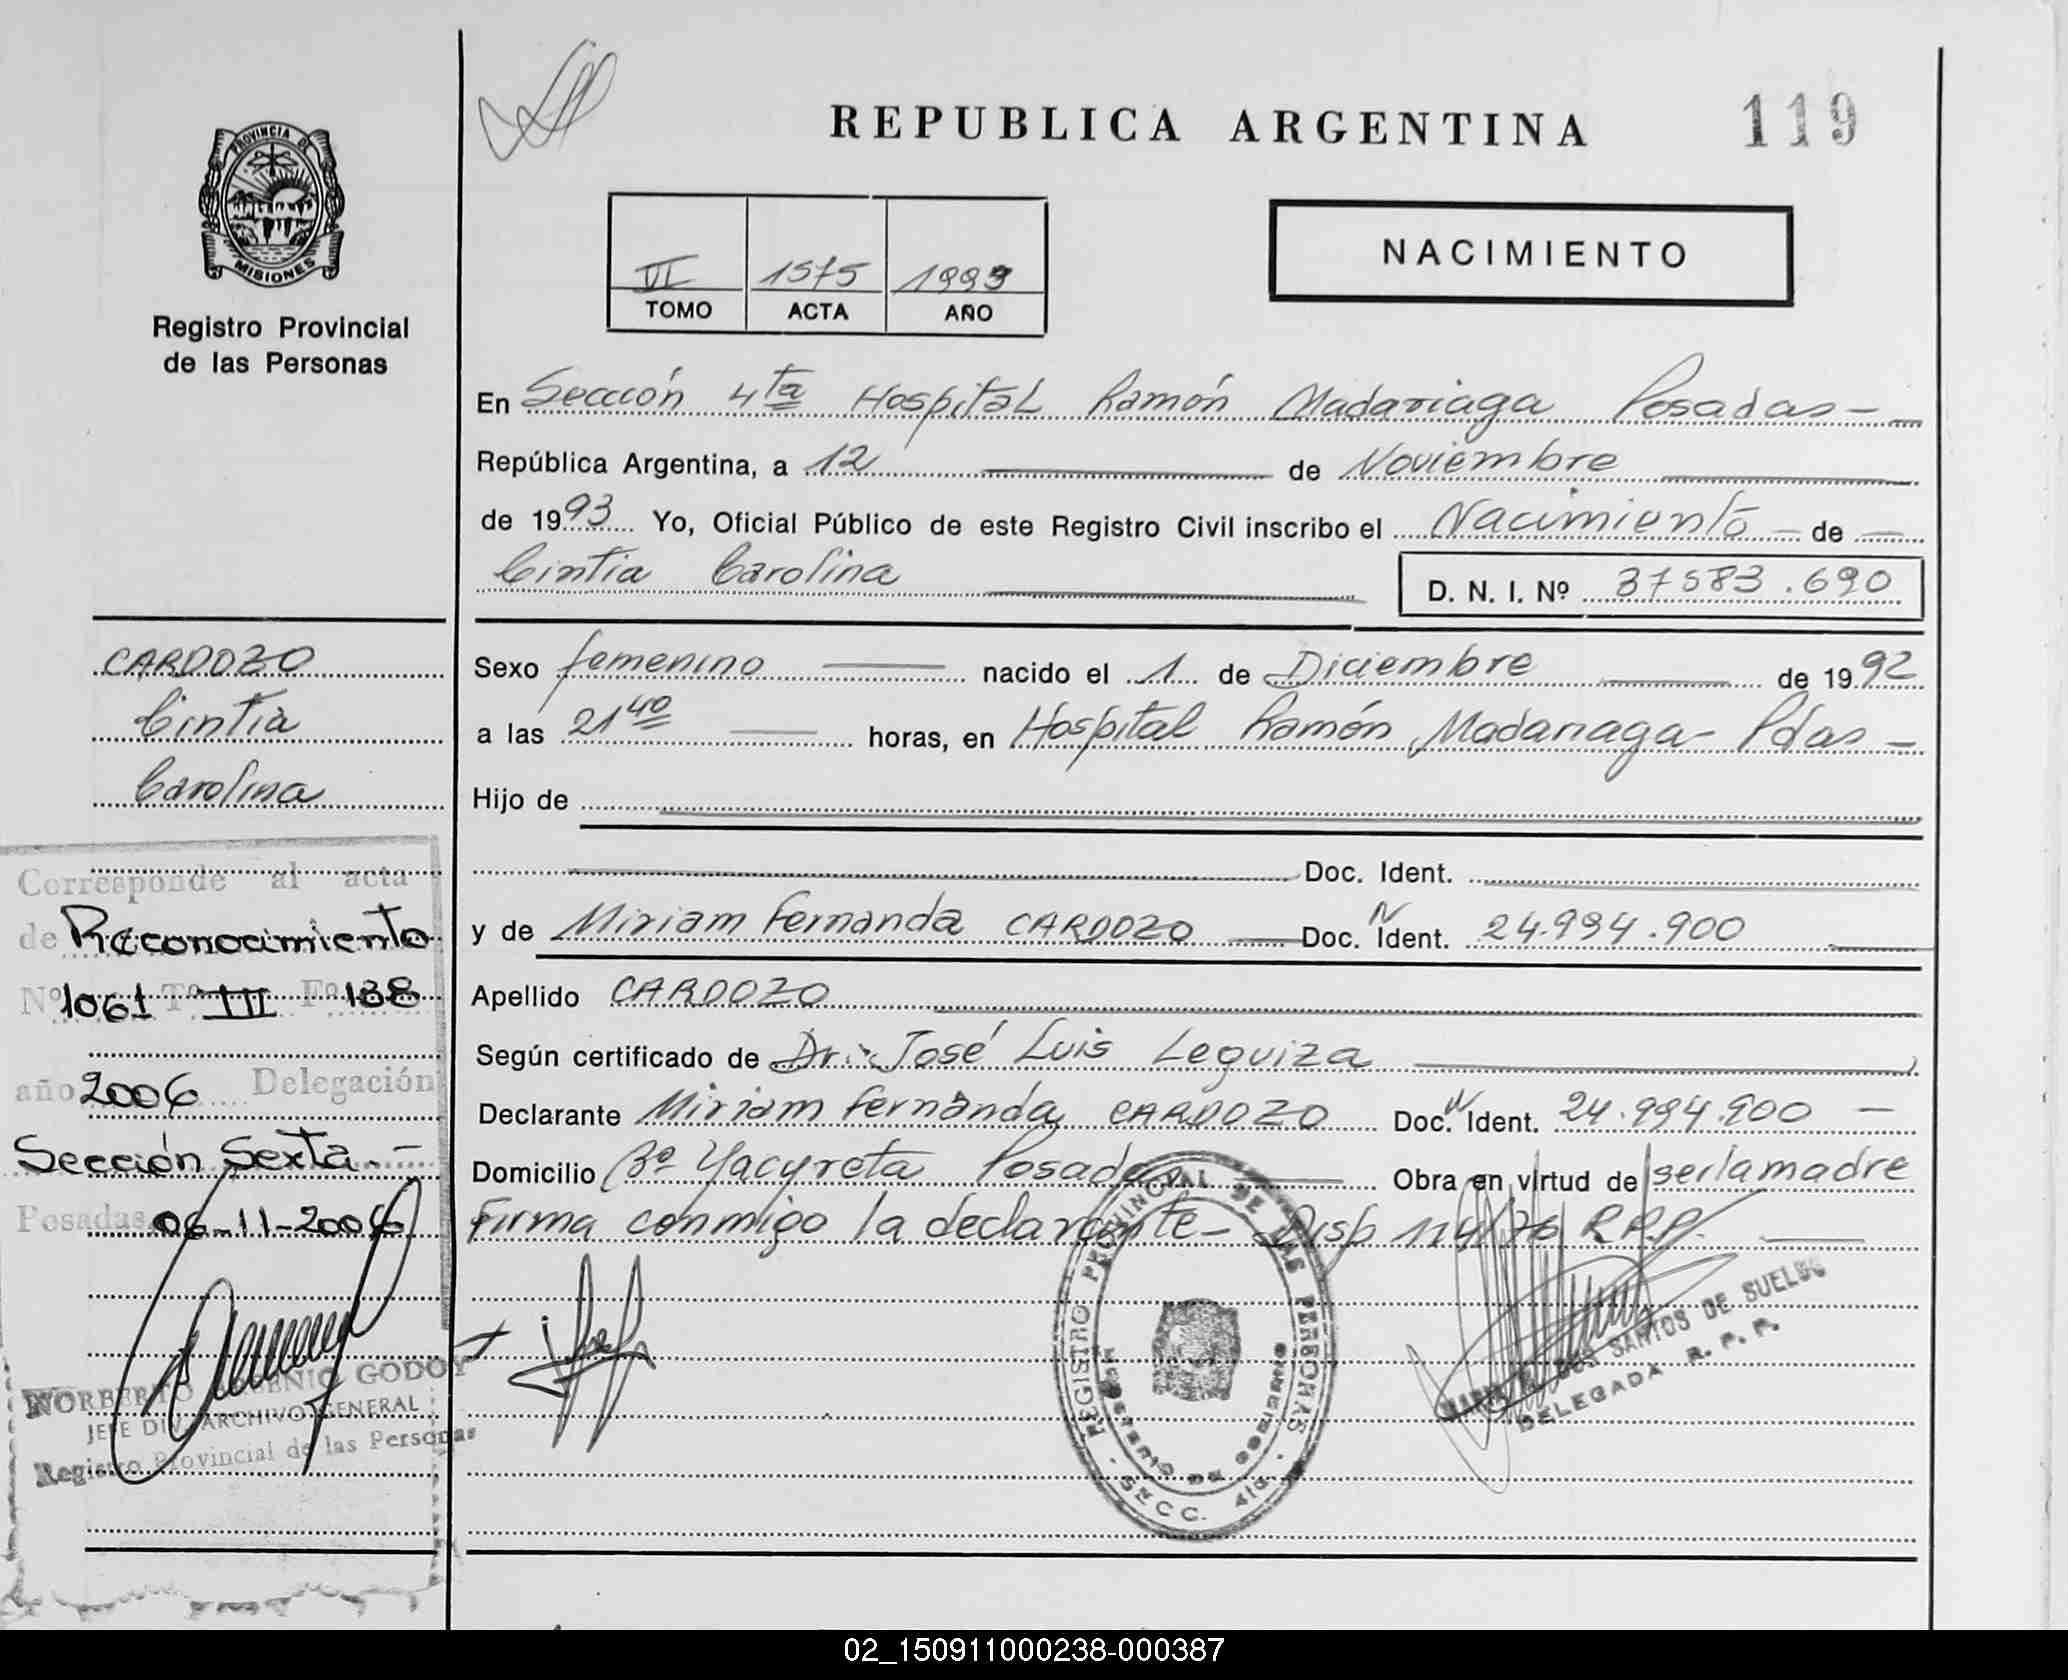 REPUBLICA ARGENTINA
119
PROVINCIA DE
MISIONES
Registro Provincial
de las Personas
VI 1575 1993
TOMO ACTA AÑO
NACIMIENTO
En Sección 4ta Hospital Ramón Madariaga Posadas
República Argentina, a 12 de Noviembre
de 1993 Yo, Oficial Público de este Registro Civil inscribo el Nacimiento de
Cintia Carolina D. N. I. Nº 37583.690
CARDOZO
Cintia
Carolina
Sexo femenino nacido el 1 de Diciembre de 1992
a las 21 40 horas, en Hospital Ramón Madariaga Pdas
Hijo de
Doc. Ident.
y de Miriam Fernanda CARDOZO Doc. N Ident. 24.994.900
Apellido CARDOZO
Según certificado de Dr. José Luis Leguiza
Declarante Miriam Fernanda CARDOZO Doc. N Ident. 24.994.900
Domicilio Bº Yacyreta Posadas Obra en virtud de ser la madre
Firma conmigo la declarante - Disp 114/76 R.P.P.
Corresponde al acta
de Reconocimiento
Nº 1061 Tº III Fº 138
año 2006 Delegación
Sección Sexta.-
Posadas 06-11-2006
NORBERTO EUGENIO GODOY
JEFE DIV. ARCHIVO GENERAL
Registro Provincial de las Personas
REGISTRO PROVINCIAL DE LAS PERSONAS
MINISTERIO DE GOBIERNO
SECC. 4ta.
DOS SANTOS DE SUELDO
DELEGADA R. P. P.
02_150911000238-000387